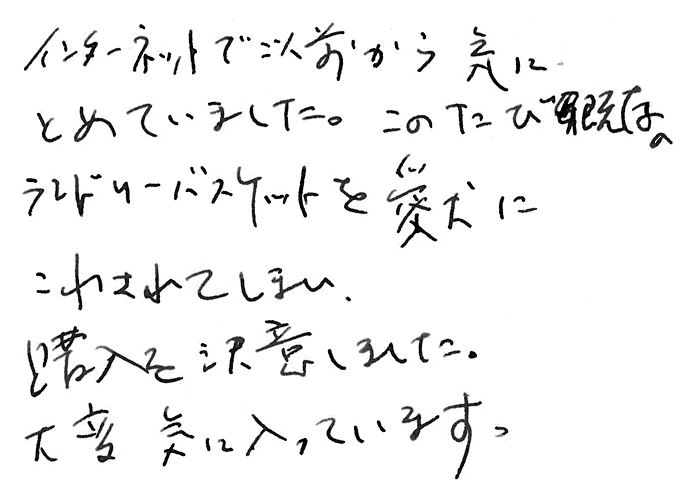 インターネットで以前から気に
とめていました。このたび既存の
ランドリーバスケットを愛犬に
こわされてしまい、
購入を決意しました。
大変気に入っています。